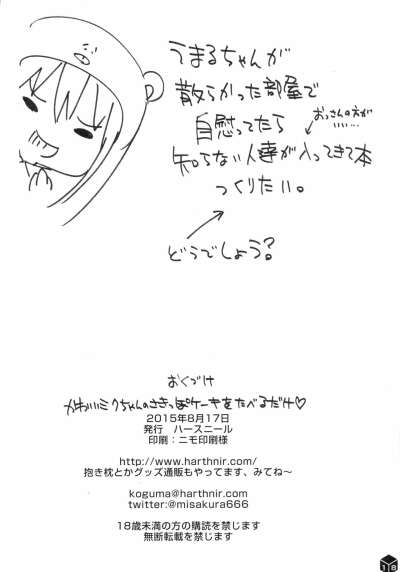 うまるちゃんが
散らかった部屋で
自慰ってたら
おっさんの方が
知らない人妻が入ってきて本
つくりたい。
どうでしょう?
おくづけ
かわいいミクちゃんのさきっぽケーキをたべるだけ♡
2015年8月17日
発行 ハースニール
印刷:ニモ印刷様
http://www.harthnir.com/
抱き枕とかグッズ通販もやってます、みてね~
koguma@harthnir.com
twitter:@misakura666
18歳未満の方の購読を禁じます
無断転載を禁じます
18